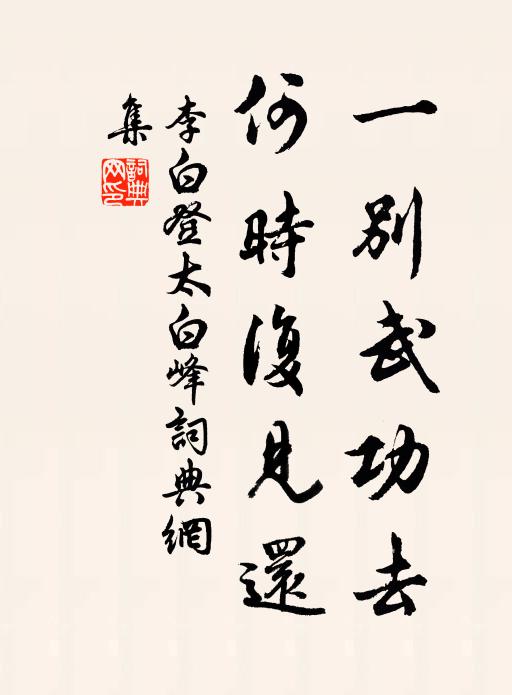 一別武功去
何時復見還
李白登太白峰詞典網
集
詞典網印